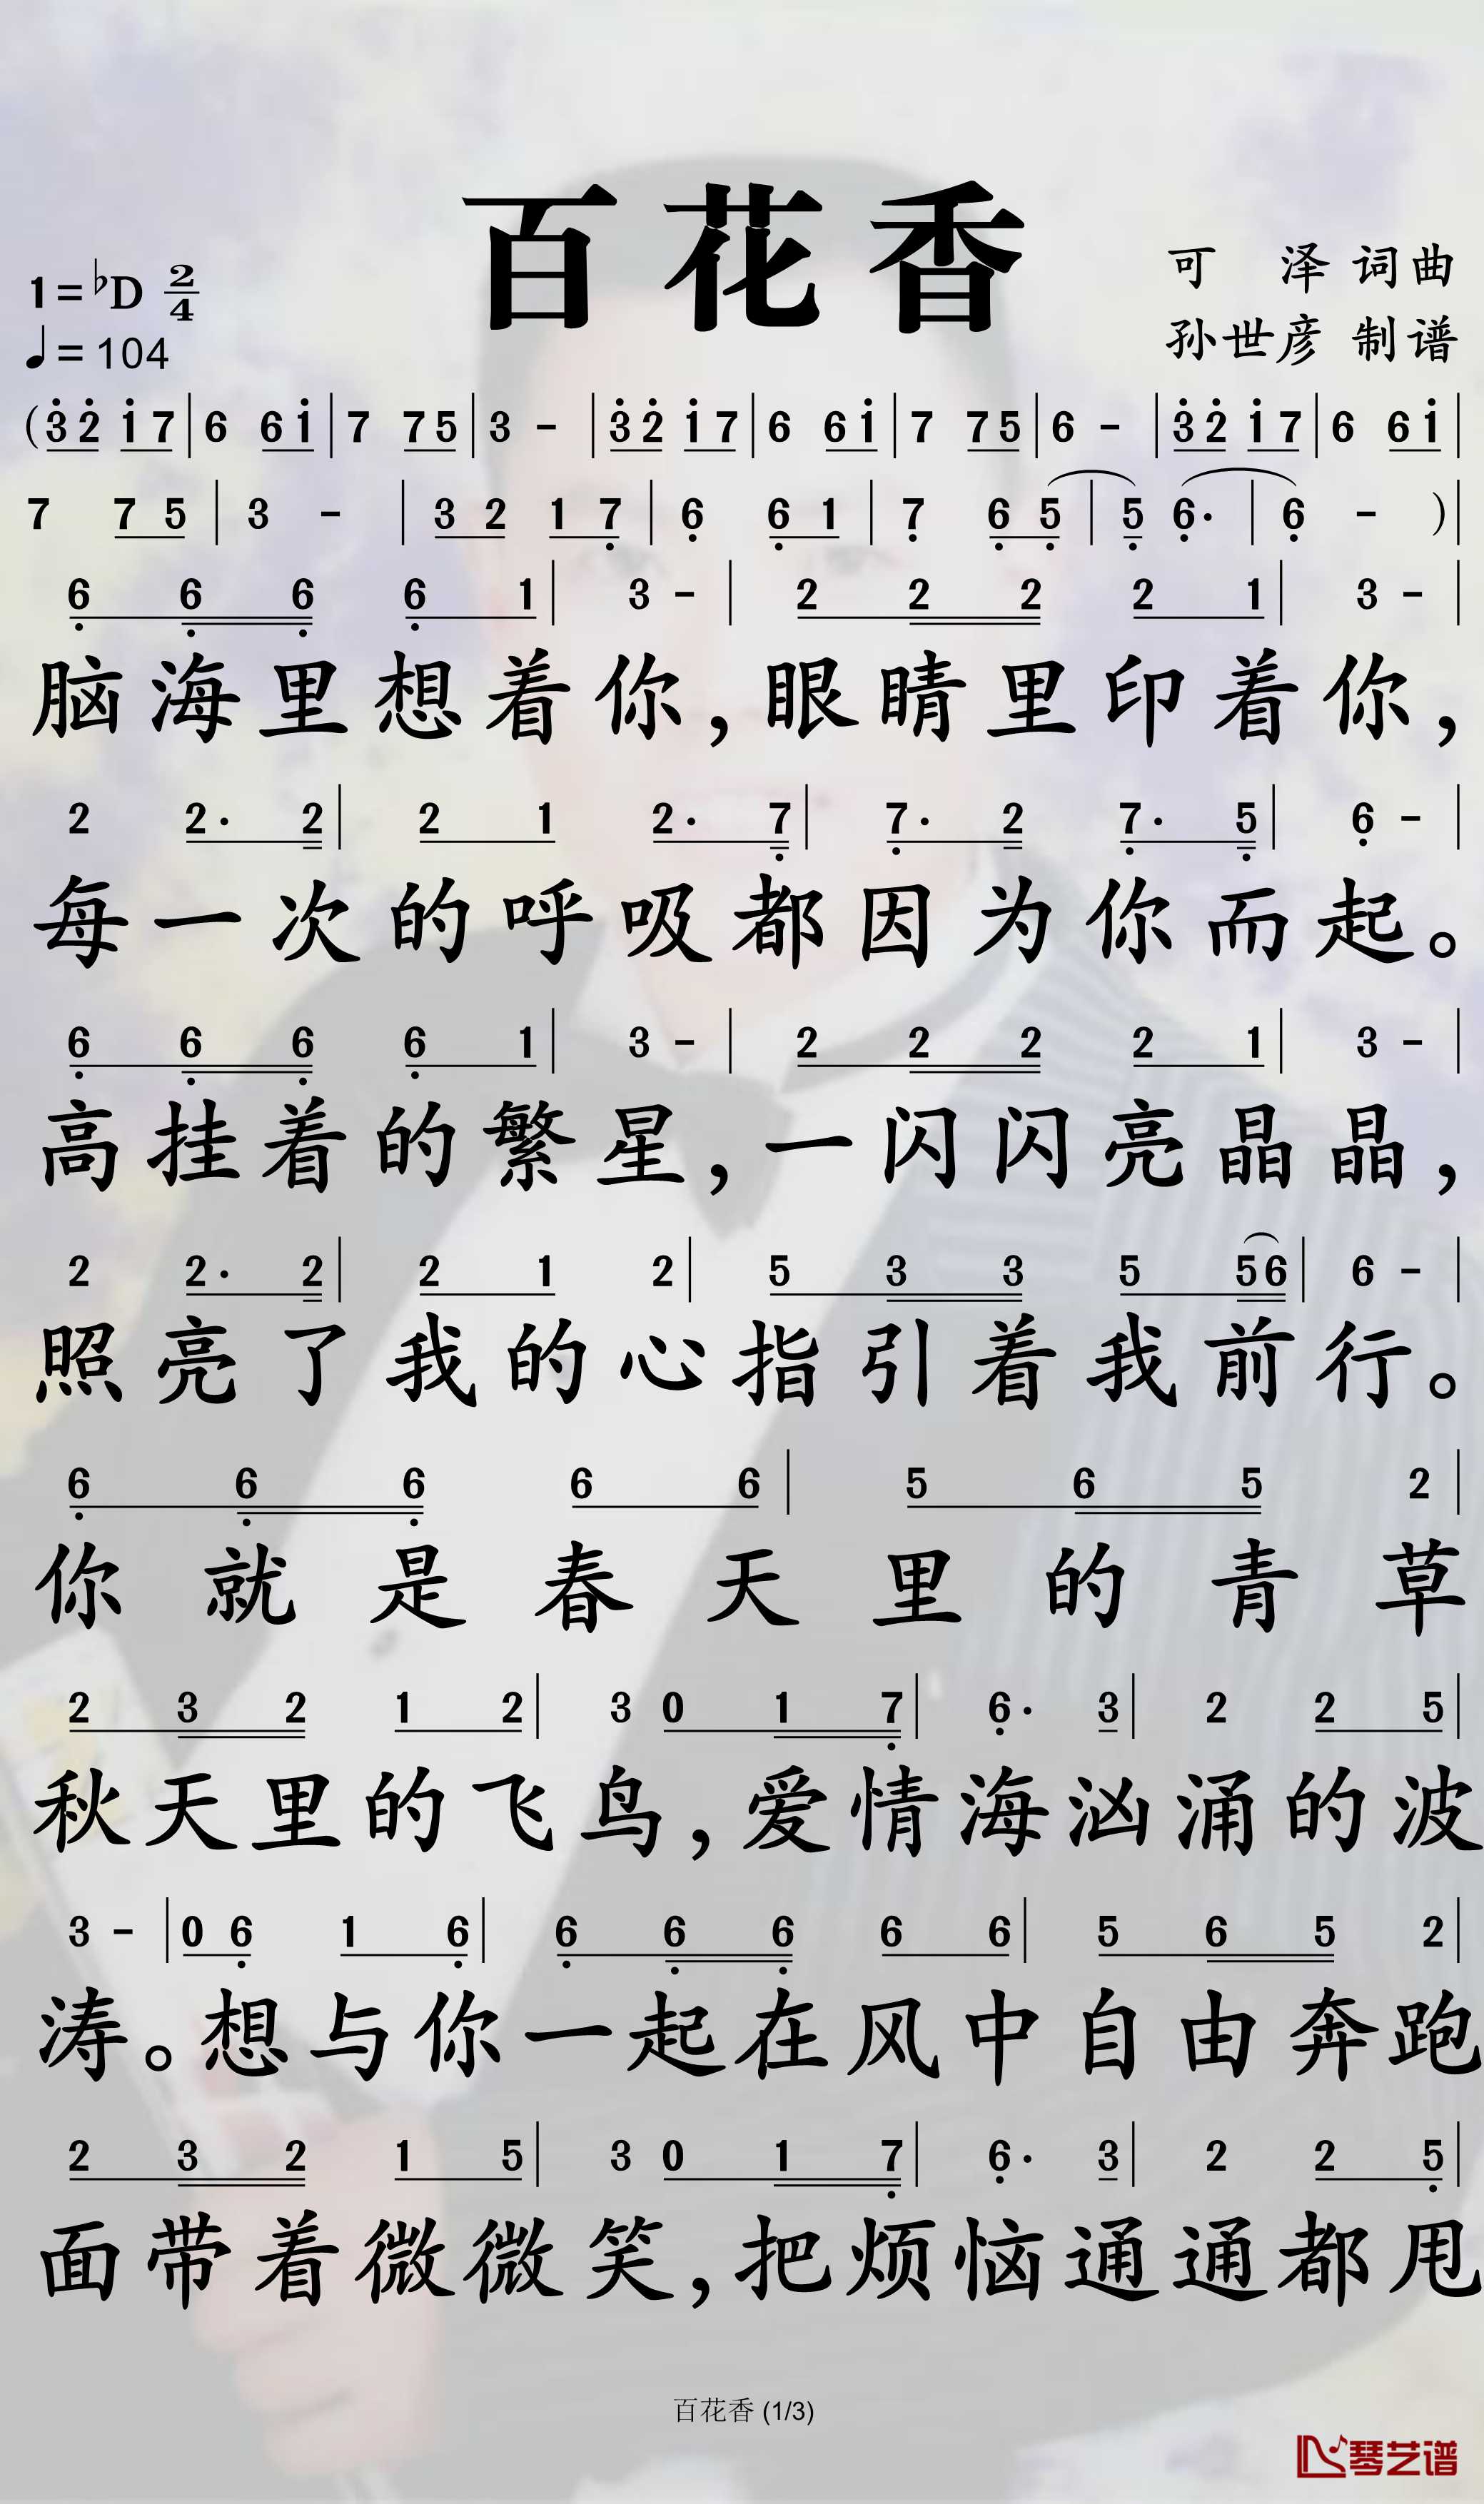 百花香
1=♭D 2/4
可 泽 词曲
♩=104
孙世彦 制谱
(3̇2̇ 1̇7|6 61̇|7 75|3 -|3̇2̇ 1̇7|6 61̇|7 75|6 -|3̇2̇ 1̇7|6 61̇|
7 75|3 -|32 17̣|6̣ 6̣1|7̣ 6̣5̣|5̣ 6̣·|6̣ -)|
6̣ 6̣ 6̣ 6̣ 1|3 -|2 2 2 2 1|3 -|
脑海里想着你,眼睛里印着你,
2 2· 2|2 1 2· 7̣|7̣· 2 7̣· 5̣|6̣ -|
每一次的呼吸都因为你而起。
6̣ 6̣ 6̣ 6̣ 1|3 -|2 2 2 2 1|3 -|
高挂着的繁星,一闪闪亮晶晶,
2 2· 2|2 1 2|5 3 3 5 56|6 -|
照亮了我的心指引着我前行。
6̣ 6̣ 6̣ 6 6|5 6 5 2|
你就是春天里的青草
2 3 2 1 2|3 0 1 7̣|6̣· 3|2 2 5|
秋天里的飞鸟,爱情海汹涌的波
3 -|0 6̣ 1 6̣|6̣ 6̣ 6̣ 6 6|5 6 5 2|
涛。想与你一起在风中自由奔跑
2 3 2 1 5|3 0 1 7̣|6̣· 3|2 2 5̣|
面带着微微笑,把烦恼通通都甩
百花香 (1/3)
琴艺谱